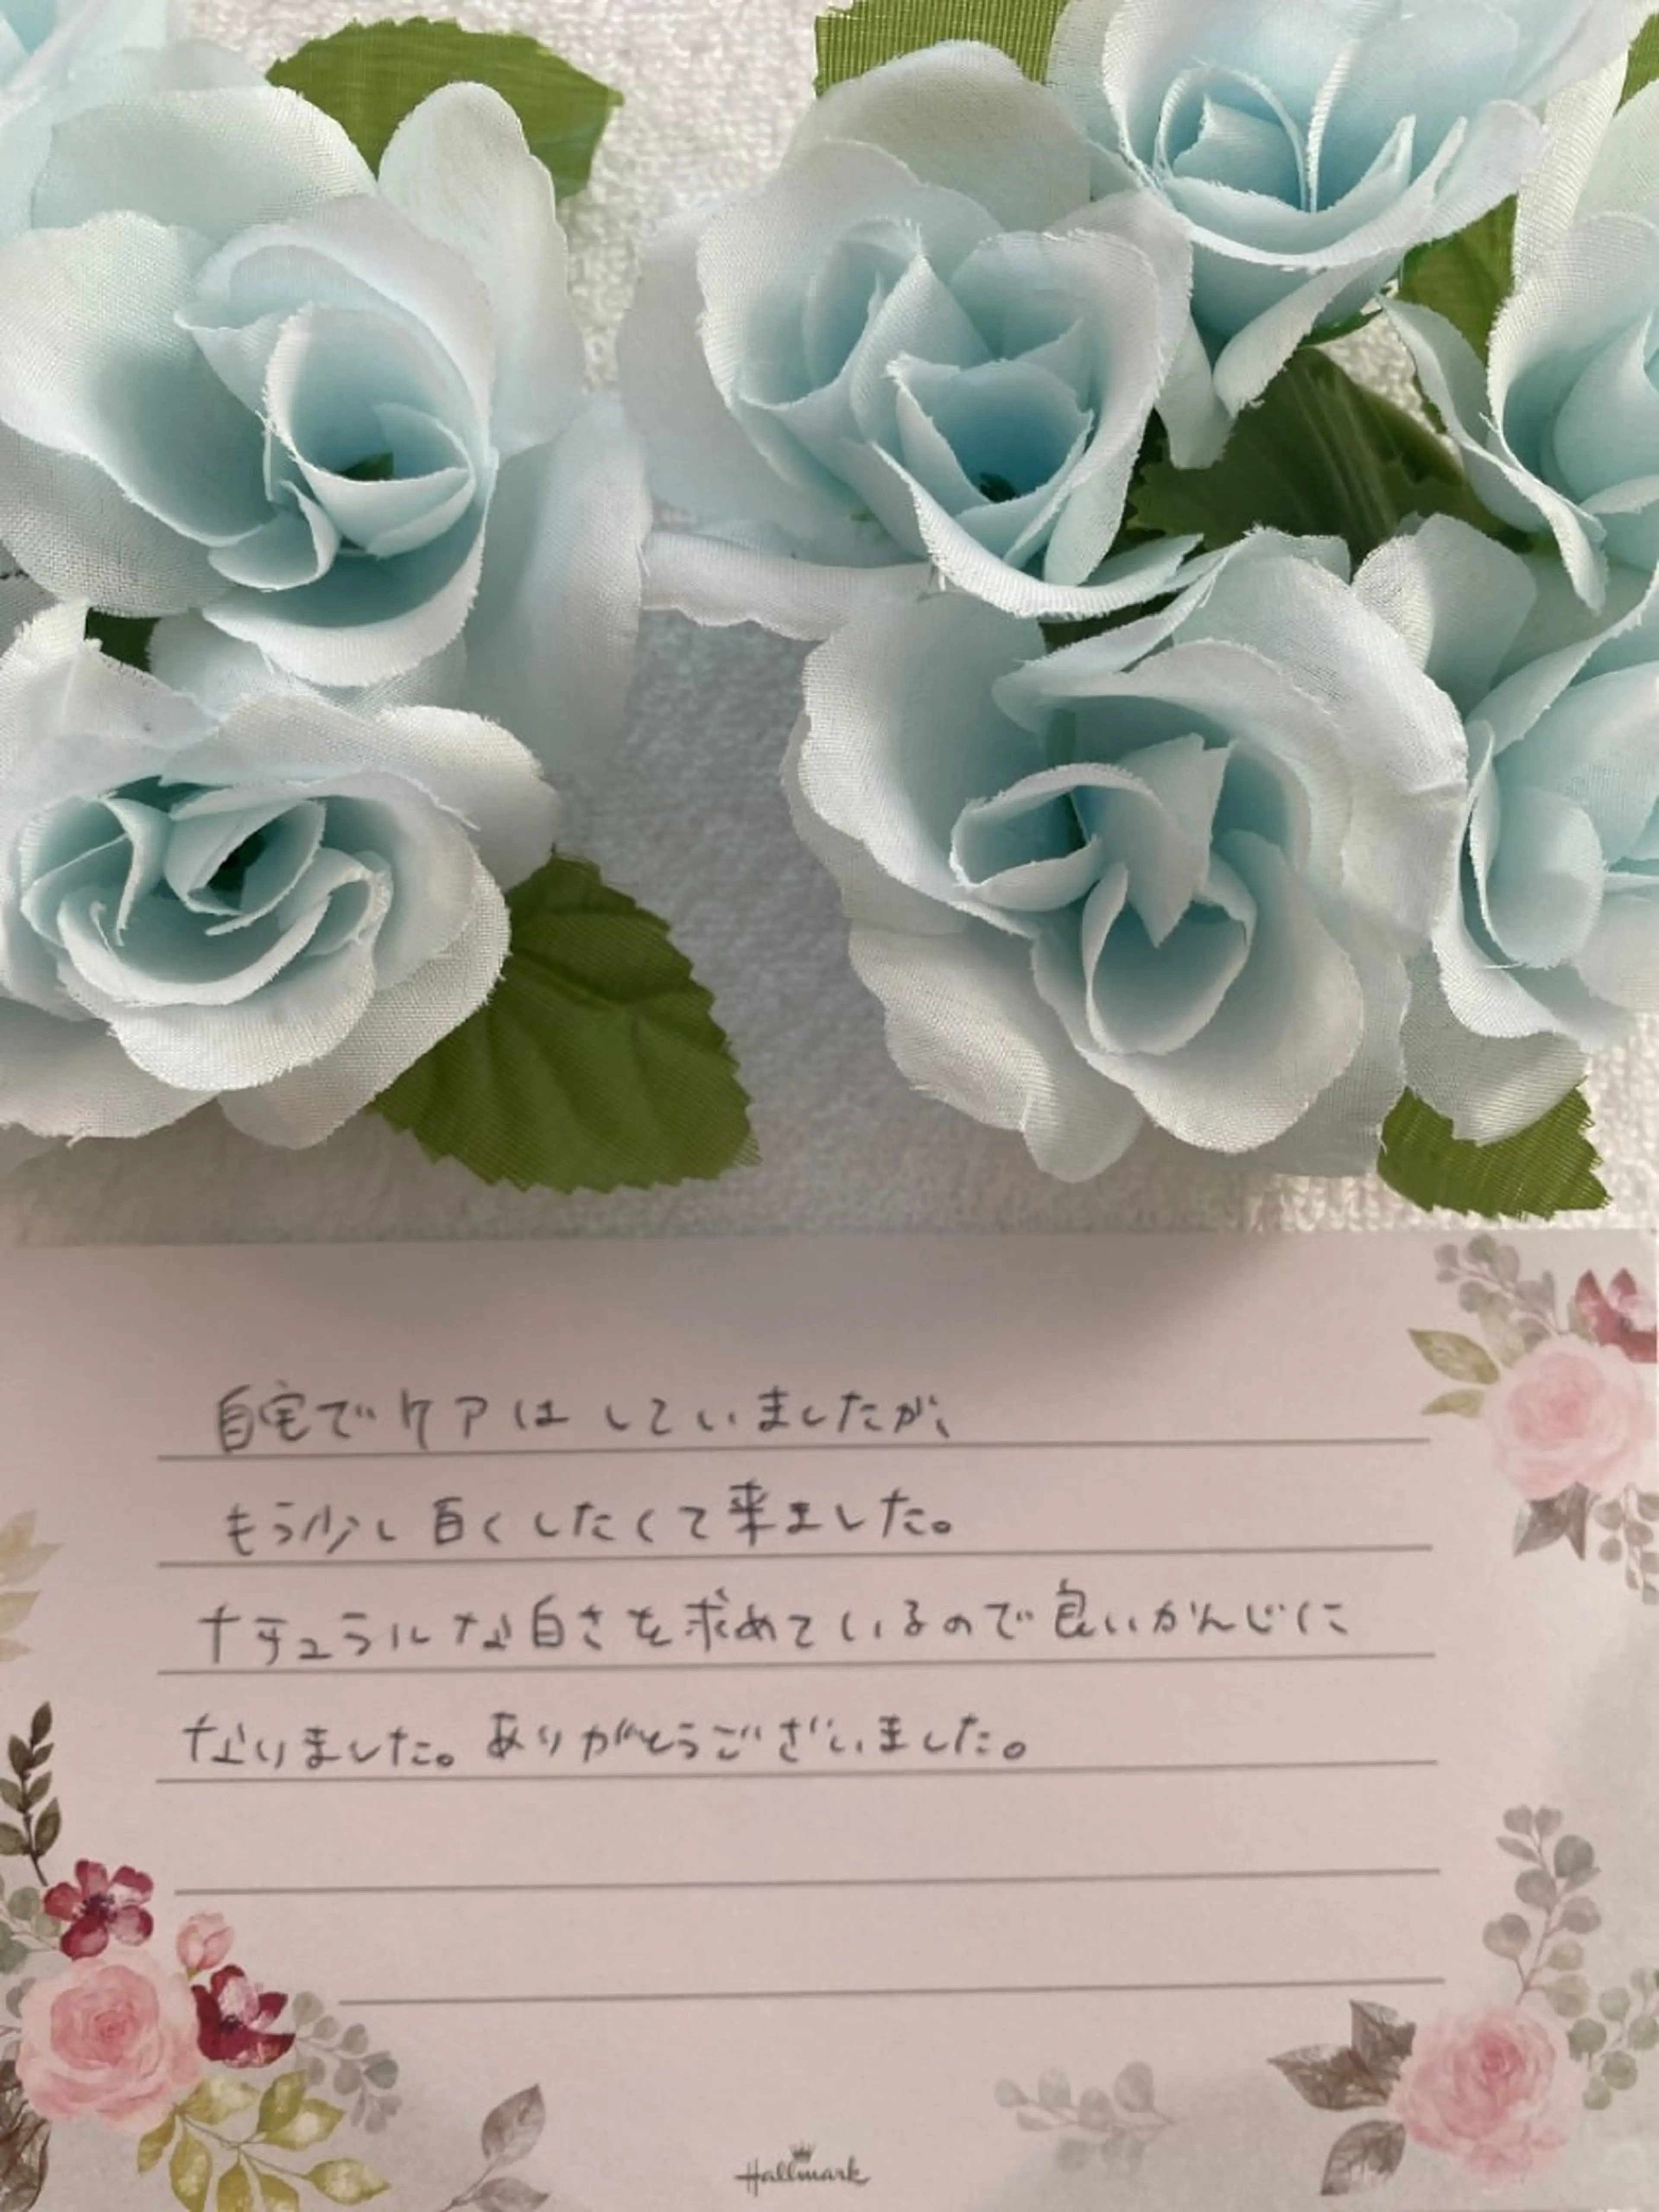 自宅でケアはしていましたが、
もう少し白くしたくて来ました。
ナチュラルな白さを求めているので良いかんじに
なりました。ありがとうございました。
Hallmark